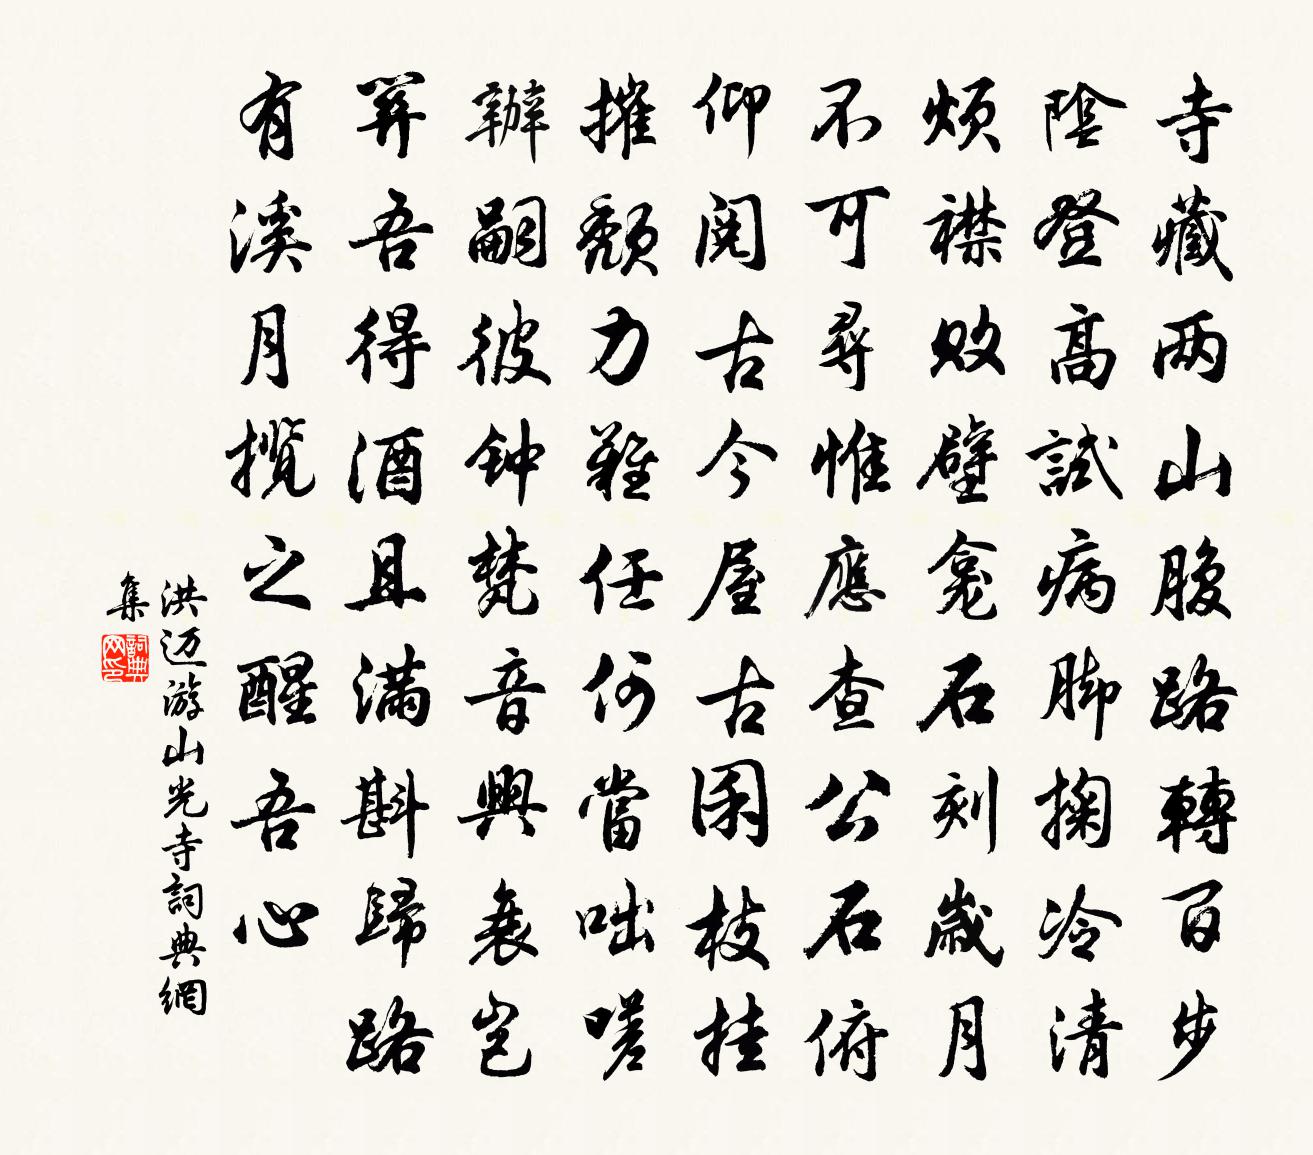 寺藏两山腹路轉百步
陰登高試病脚掬冷清
煩襟敗壁龕石刻歲月
不可尋惟應查公石俯
仰閱古今屋古困枝挂
摧頹力難任何當咄嗟
辦嗣彼钟梵音興衰豈
關吾得酒且滿斟歸路
有溪月攬之醒吾心
洪迈游山光寺詞典網
集
詞典网印